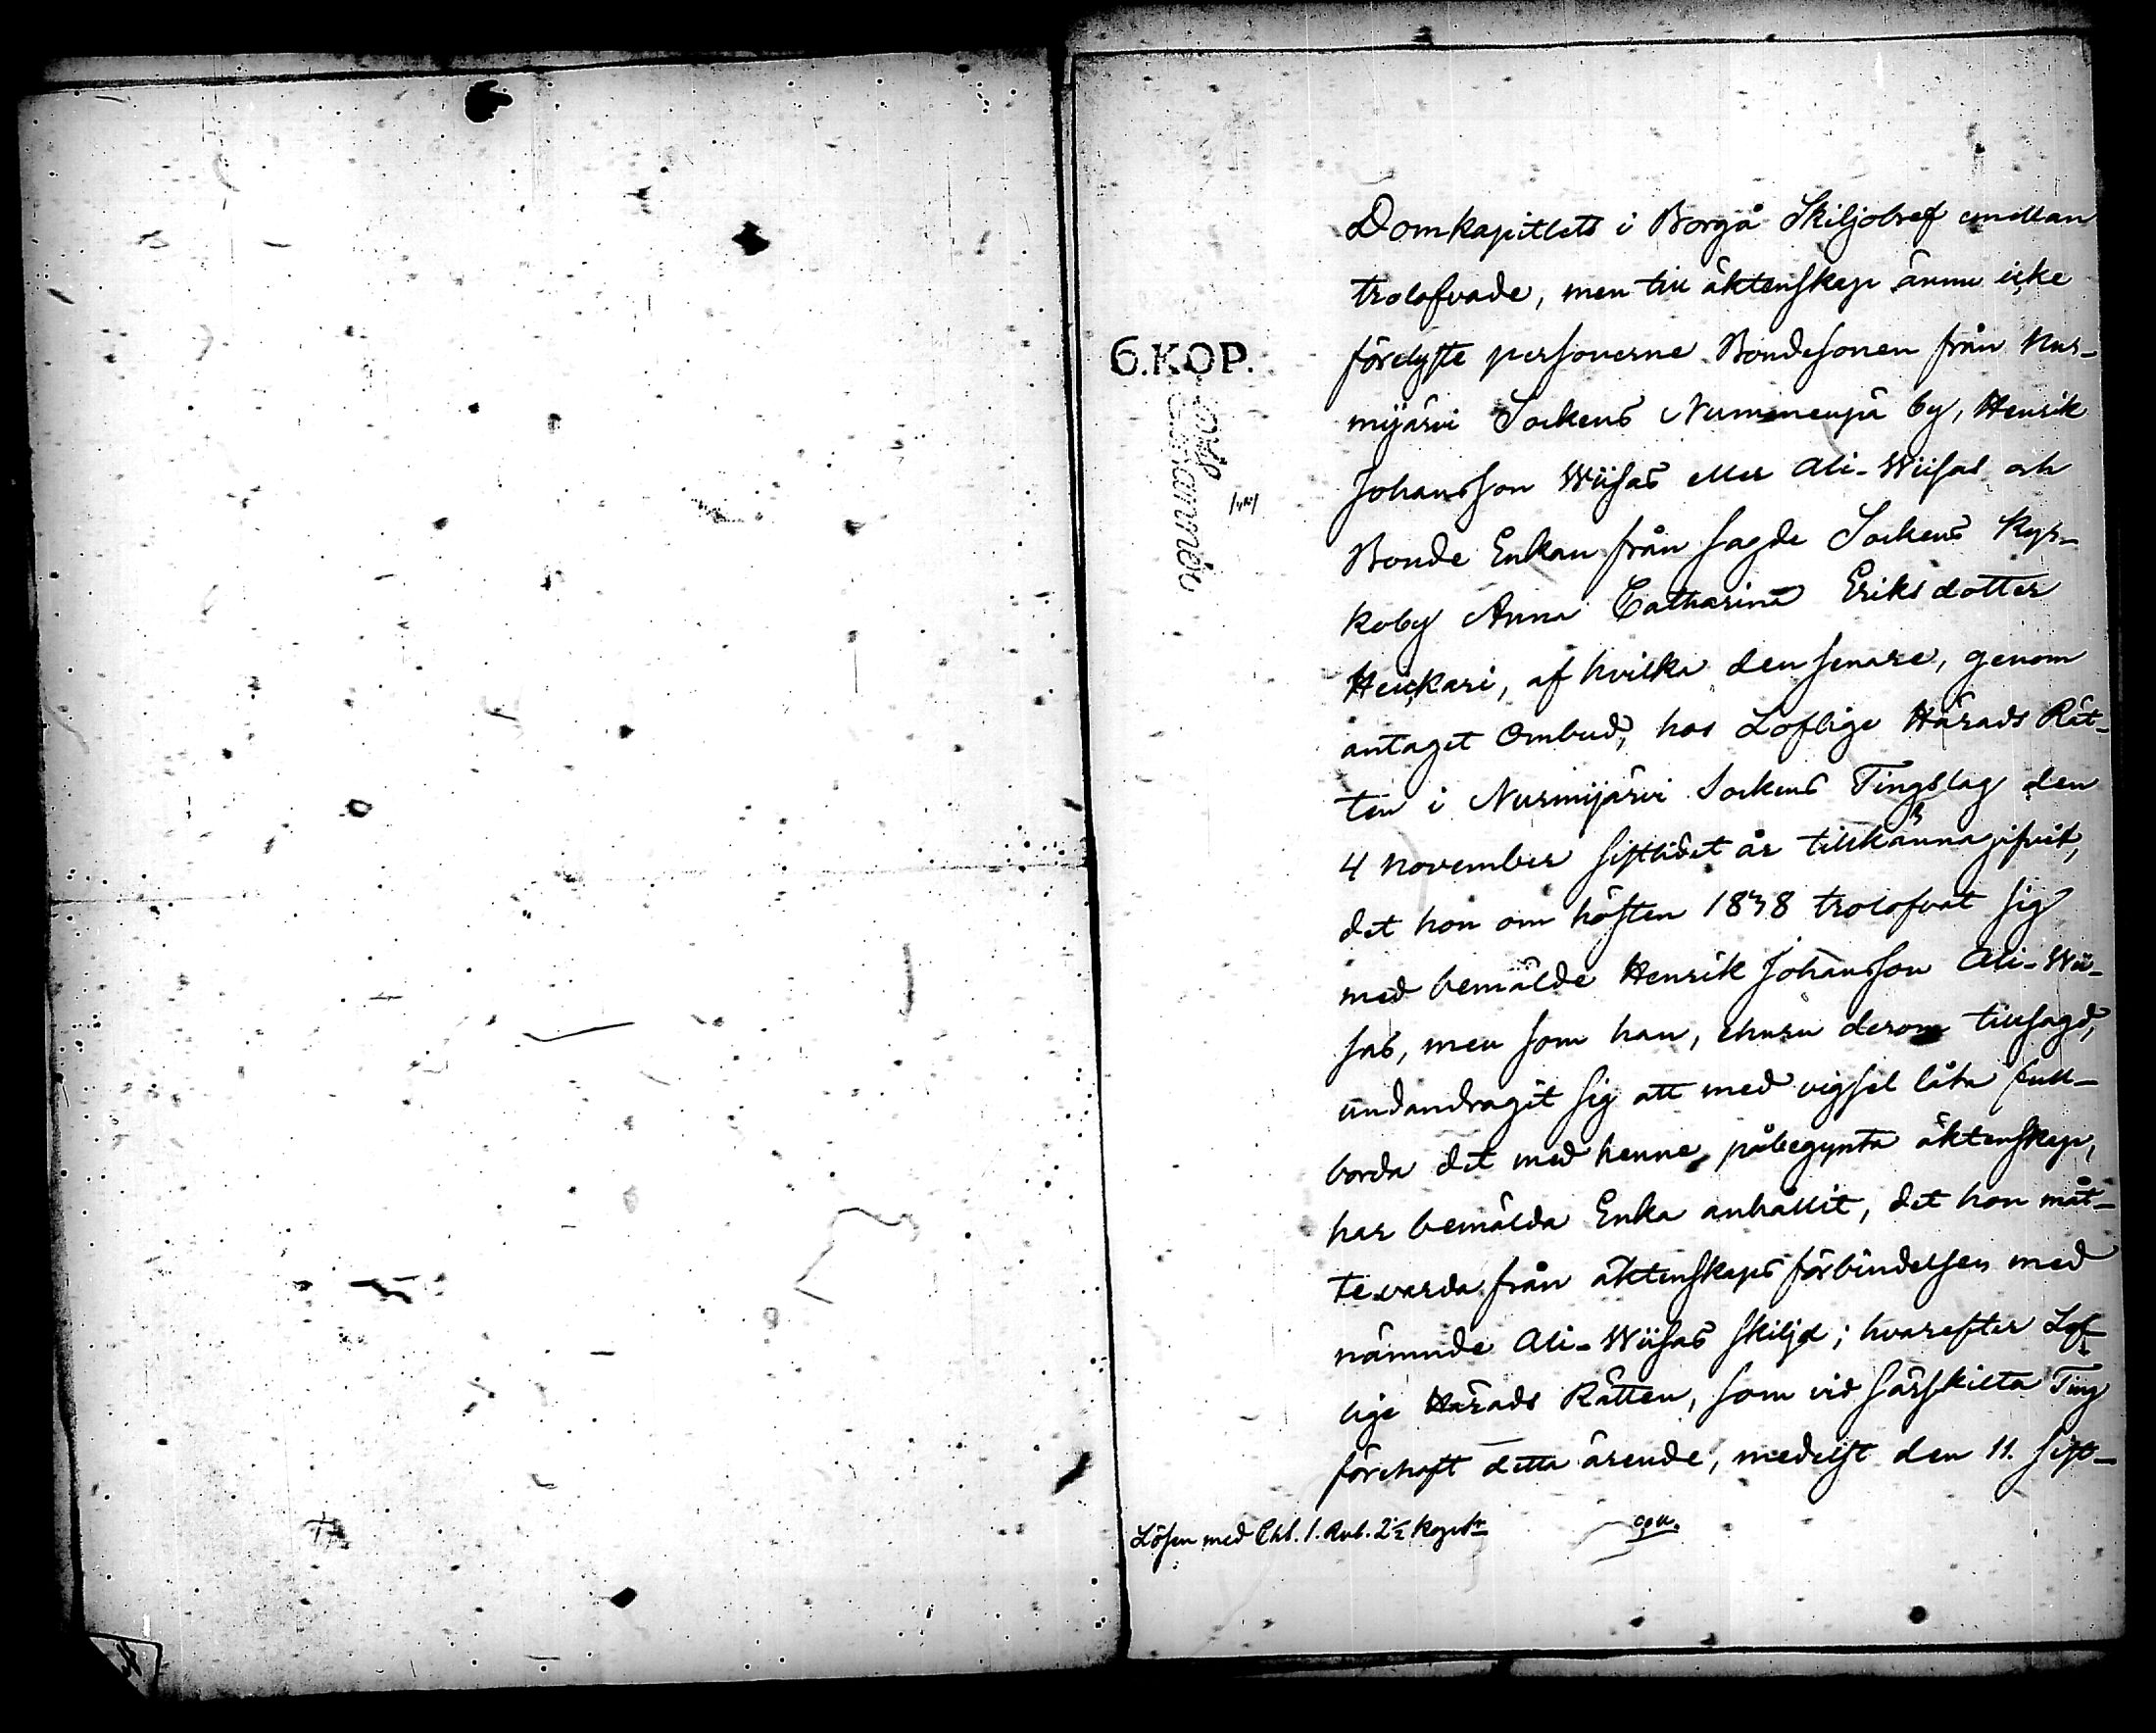 Domkapitlets i Borgå Skiljobref emellan
trolofvade, men till äktenskap ännu icke
förelyste personerne Bondesonen från Nur-
mijärvi Sockens Nummenpä by, Henrik
Johansson Wiisas eller Ali-Wiisas och
Bonde Enkan från sagde Sockens Kyr-
koby Anna Catharina Eriksdotter
Heickari, af hvilka den senare, genom
antaget Ombud, hos Loflige Härads Rät-
ten i Nurmijärvi Sockens Tingslag den
4 November sistlidet år tillkännagifvit,
det hon om hösten 1838 trolofvat sig
med bemälde Henrik Johansson Ali-Wii-
sas, men som han, ehuru derom tillsagd,
undandragit sig att med vigsel låta full-
borda det med henne påbegynta äktenskap,
har bemälda Enka anhållit, det hon måt-
te varda från äktenskaps förbindelsen med
nämnde Ali-Wiisas skiljd; hvarefter Lof-
lige Härads Rätten, som vid särskilta Ting
förehaft detta ärende, medelst den 11. sist-
6.KOP.
Lösen med Chl. 1. Rub. 2½ Kop. Sr